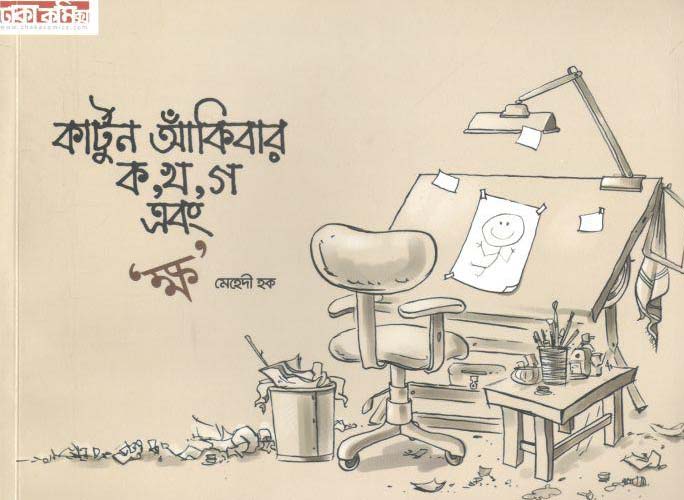 ঢাকা কমিক্স
www.dhakacomics.com
কার্টুন আঁকিবার
ক,খ,গ
এবং
‘ক্ষ’
মেহেদী হক